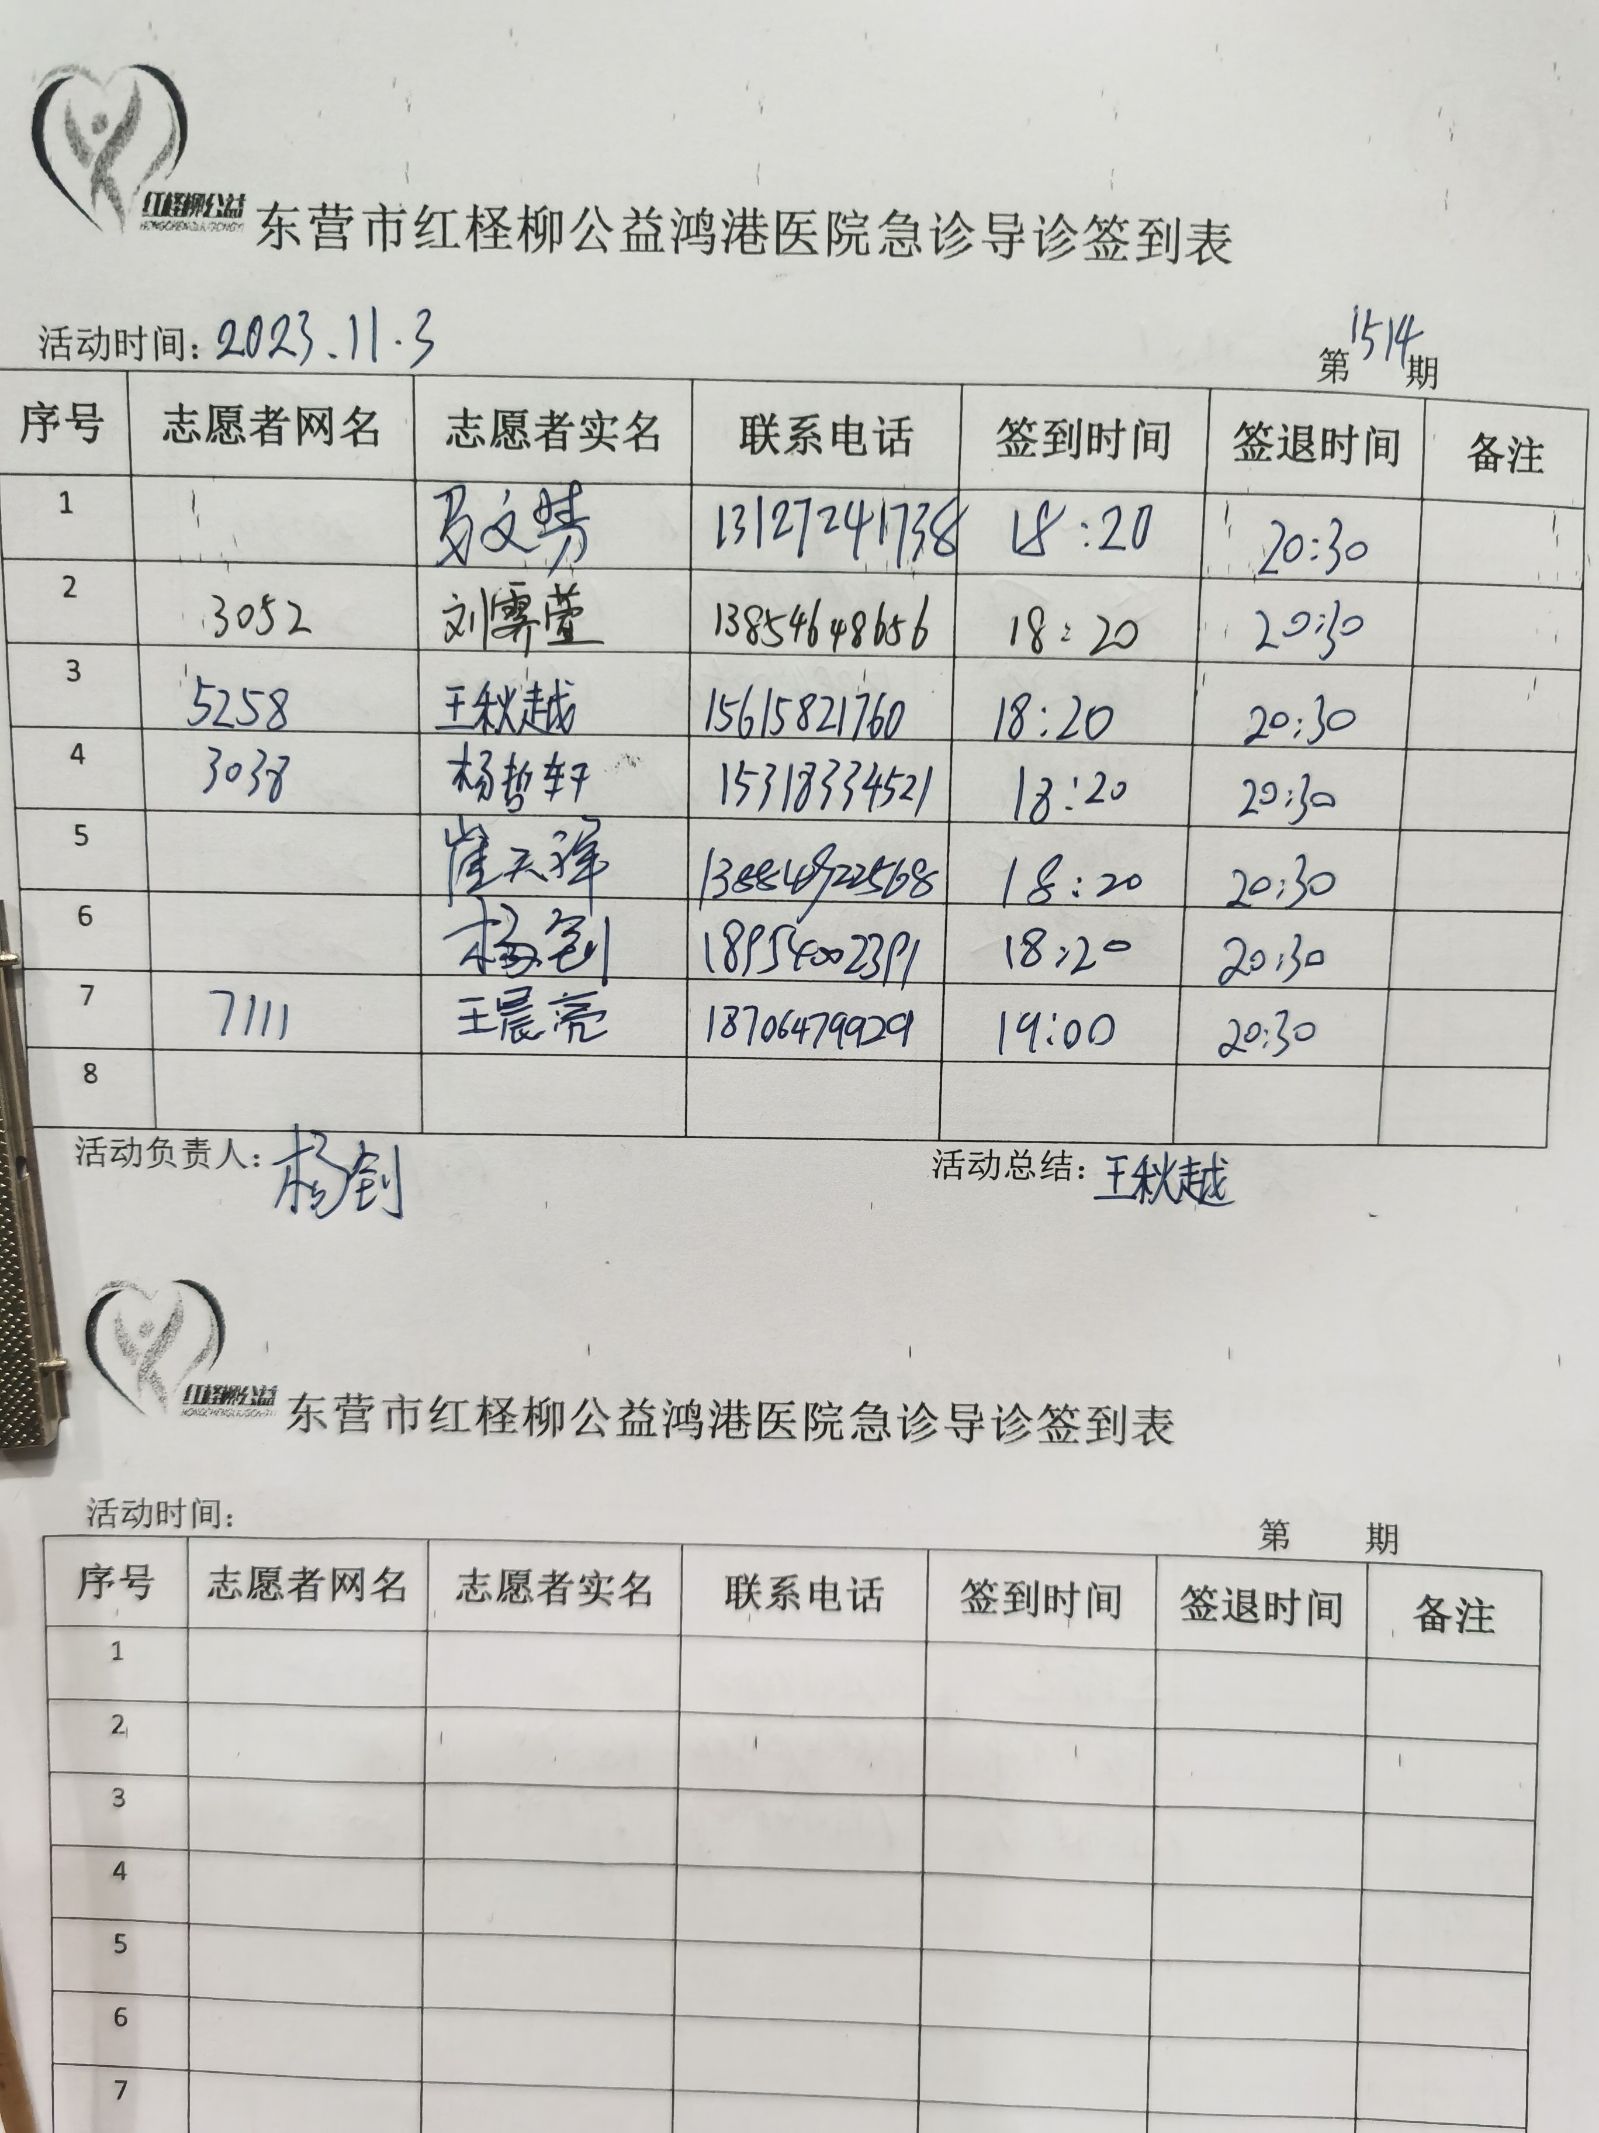 红柽柳公益
HONGCHENGLIUGONGYI
东营市红柽柳公益鸿港医院急诊导诊签到表
活动时间：2023.11.3 第1514期
序号 志愿者网名 志愿者实名 联系电话 签到时间 签退时间 备注
1 13127241738 18:20 20:30
2 3052 刘霁萱 13854648656 18:20 20:30
3 5258 王秋越 15615821760 18:20 20:30
4 3038 杨哲轩 15318334521 18:20 20:30
5 崔天祥 18:20 20:30
6 杨剑 18954002391 18:20 20:30
7 7111 王晨亮 18706479929 19:00 20:30
8
活动负责人：杨剑 活动总结：王秋越
红柽柳公益
HONGCHENGLIUGONGYI
东营市红柽柳公益鸿港医院急诊导诊签到表
活动时间： 第 期
序号 志愿者网名 志愿者实名 联系电话 签到时间 签退时间 备注
1
2
3
4
5
6
7